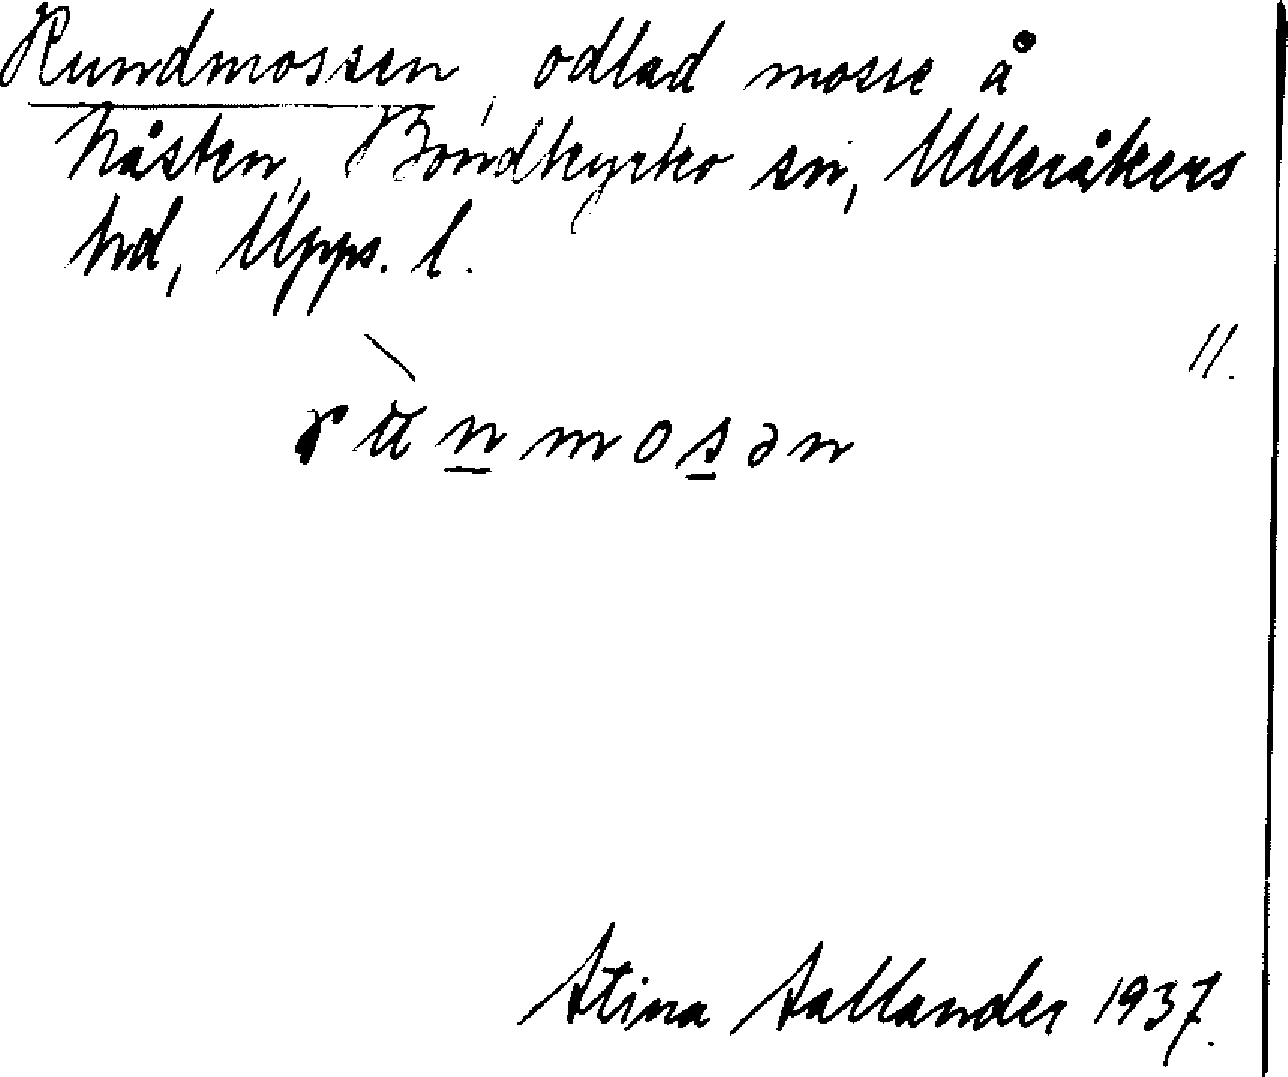 Rundmossen, odlad mosse å
Håsten, Bondkyrko sn, Ulleråkers
hd, Upps. l.
11.
ru̠nmosən
Stina Sallander 1937.